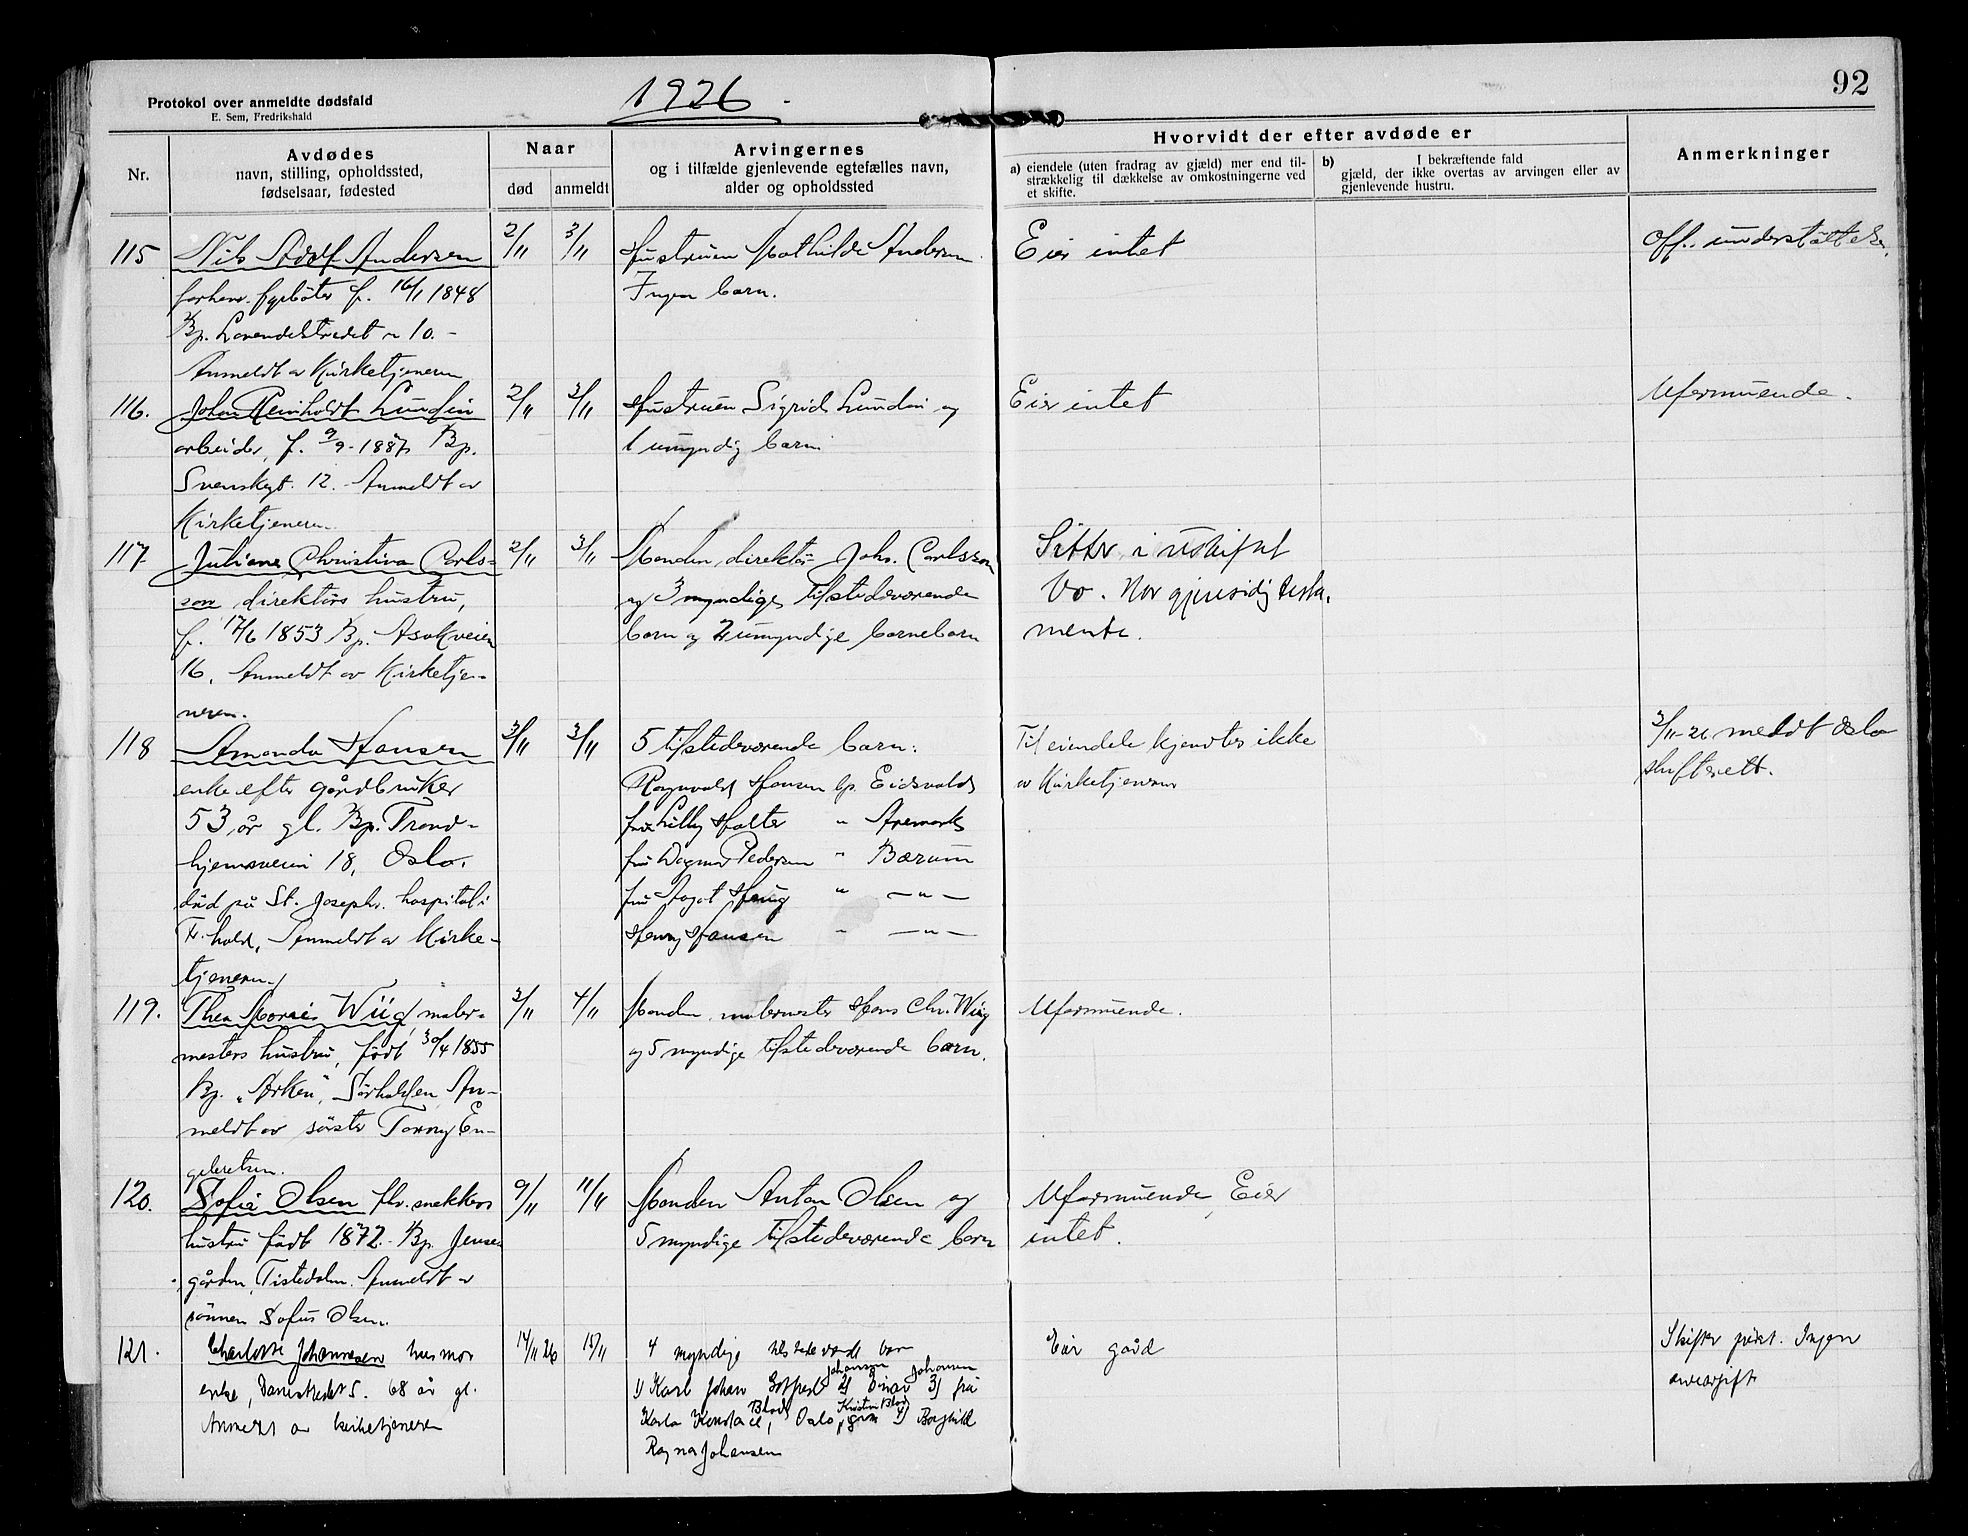 92
1926
Protokol over anmeldte dødsfald
E. Sem, Fredrikshald
Nr.
Avdødes
navn, stilling, opholdssted,
fødselsaar, fødested
Naar
død
anmeldt
Arvingernes
og i tilfælde gjenlevende egtefælles navn,
alder og opholdssted
Hvorvidt der efter avdøde er
a) eiendele (uten fradrag av gjæld) mer end til-
strækkelig til dækkelse av omkostningerne ved
et skifte.
b) I bekræftende fald
gjæld, der ikke overtas av arvingen eller av
gjenlevende hustru.
Anmerkninger
115
Nils Adolf Andersen
forhenv. fyrbøter f. 16/1 1848
Bp. Lavendelstrædet 10.-
Anmeldt av Kirketjeneren
2/11
3/11
Hustruen Mathilde Andersen.
Ingen barn.
Eier intet
Off. understøttelse.
116.
Johan Reinholdt Lundin
arbeider, f. 9/9-1887 Bp.
Svenskegt. 12. Anmeldt av
Kirketjeneren.
2/11
3/11
Hustruen Sigrid Lundin og
1 umyndig barn
Eier intet
Uformuende.
117.
Juliane Christina Carls-
son direktørs hustru,
f. 17/6 1853 Bp. Asakveien
16. Anmeldt av Kirketje-
neren.
2/11
3/11
Manden, direktør Johs. Carlsson
og 3 myndige tilstedeværende
barn og 2 umyndige barnebarn
Sitter i uskiftet
bo. Har gjensidig testa-
mente.
118
Amanda Hansen
enke efter gårdbruker
53 år gl. Bp. Trond-
hjemsveien 18, Oslo.
død på St. Josephs. hospital i
F.hald, Anmeldt av Kirke-
tjeneren.
3/11
3/11
5 tilstedeværende barn:
Ragnvald Hansen bp. Eidsvold
fru Lilly Holter " Aremark
fru Dagmar Pedersen " Bærum
fru Aagot Haug " —"—
Henry Hansen " —"—
Til eiendele kjendtes ikke
av Kirketjeneren
3/11-26 meldt Oslo
skifterett.
119.
Thea Marie Wiig, maler-
mesters hustru, født 30/4 1855
Bp. "Arken", Sørhalden, An-
meldt av søster Fanny En-
gebretsen.
3/11
4/11
Manden, malermester Hans Chr. Wiig
og 5 myndige tilstedeværende barn.
Uformuende.
120.
Sofie Olsen fhv. snekkers
hustru født 1872. Bp. Jensen
gården, Tistedalen. Anmeldt av
sønnen Sofus Olsen.
9/11
11/11
Manden Anton Olsen og
5 myndige tilstedeværende barn
Uformuende, Eier
intet.
121.
Charlotte Johannesen husmor
enke, 5. 68 år gl.
Anmeldt av kirketjeneren
14/11 26
15/11
4 myndige tilstedeværende barn
Johansen Johansen
1) Karl Johan 2) Einar 3) fru
Karla Oslo, 4) Borghild
Ragna Johansen
Eier gård
Skifter privt. Ingen
arveavgift